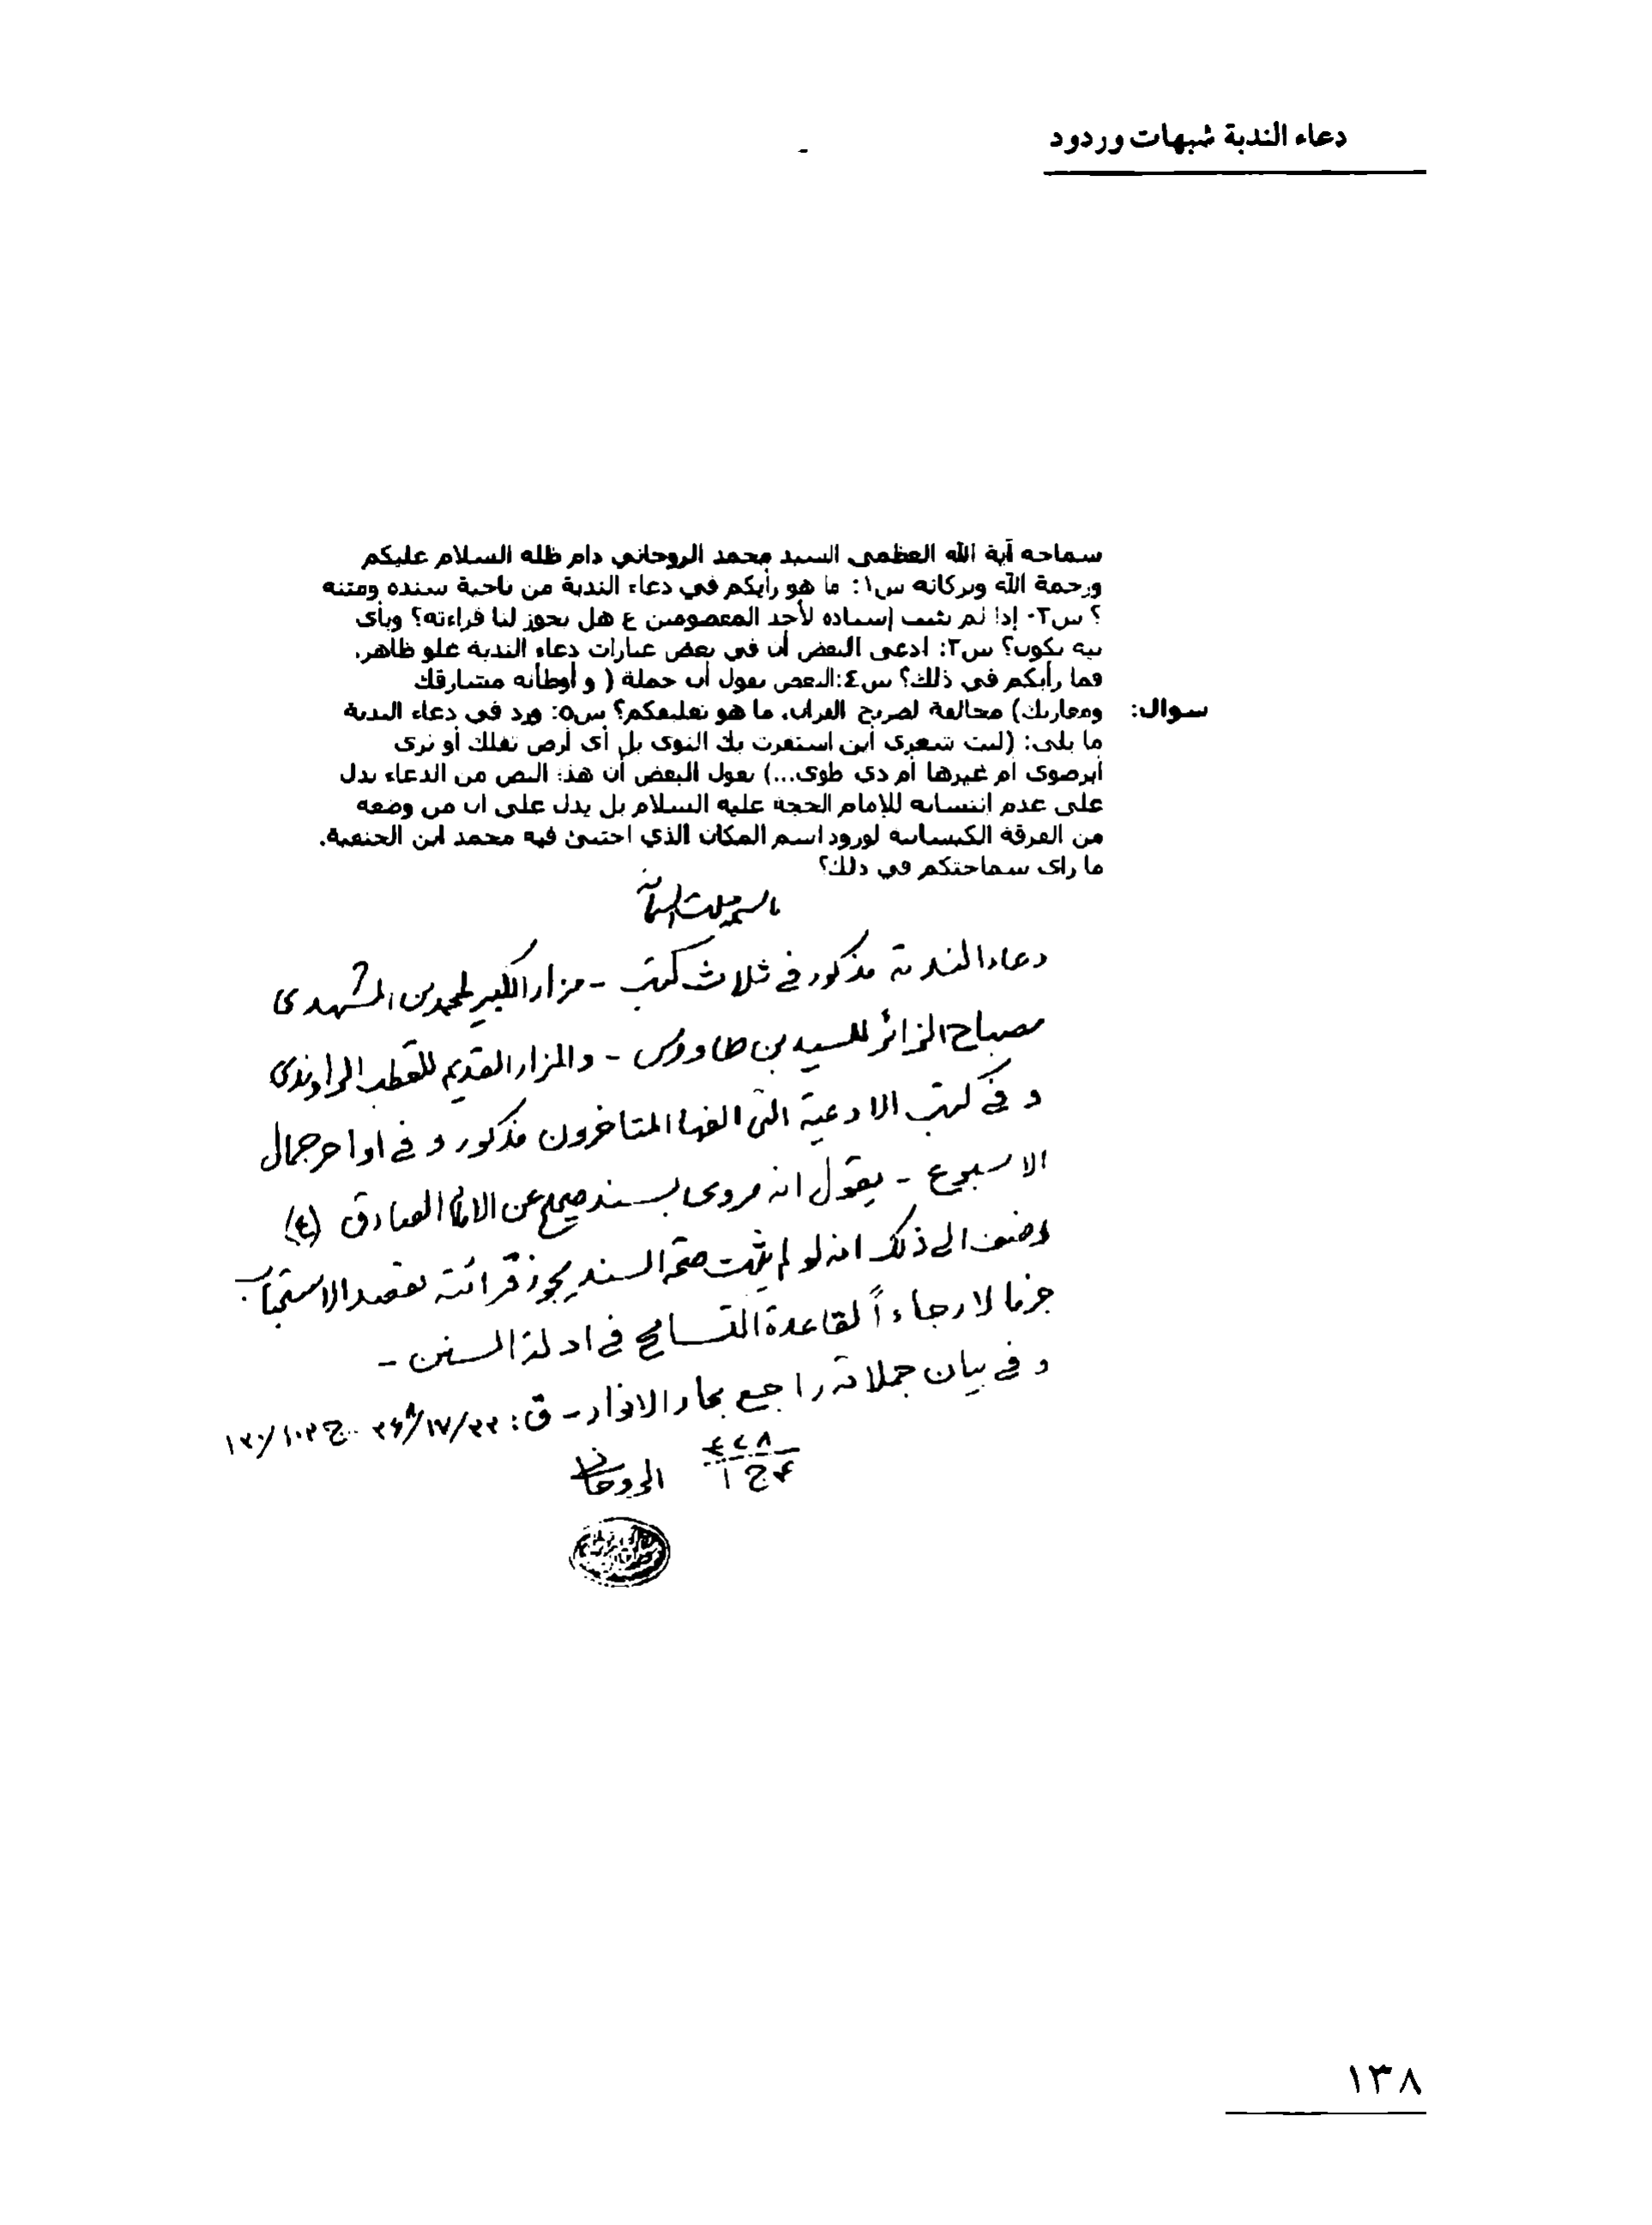 دعاء الندبة شبهات وردود
سماحه آية الله العظمى السيد محمد الروحاني دام ظله السلام عليكم
ورحمة الله وبركاته س١: ما هو رأيكم في دعاء الندبة من ناحية سنده ومتنه
؟ س٢: إذا لم يثبت إسناده لأحد المعصومين ع هل يجوز لنا قراءته؟ وبأى
نيه يكون؟ س٣: ادعى البعض أن في بعض عبارات دعاء الندبة غلو ظاهر.
فما رأيكم في ذلك؟ س٤: البعض يقول أن جملة ( و أوطأته مشارقك
سوال: ومغاربك) مخالفة لصريح القرآن. ما هو تعليقكم؟ س٥: ورد في دعاء الندبة
ما يلى: (ليت شعرى أين استقرت بك النوى بل أى أرض تقلك أو ثرى
أبرضوى أم غيرها أم ذى طوى...) يقول البعض أن هذا النص من الدعاء يدل
على عدم انتسابه للإمام الحجة عليه السلام بل يدل على ان من وضعه
من الفرقة الكيسانيه لورود اسم المكان الذي اختبئ فيه محمد ابن الحنفية.
ما راى سماحتكم في ذلك؟
باسمه جلت اسمائه
دعاء الندبة مذكور في ثلاث كتب - مزار الكبير لمحمد بن المشهدى
مصباح الزائر للسيد بن طاووس - والمزار القديم للقطب الراوندى
و في كتب الادعية التى الفها المتاخرون مذكور و في اواخر جمال
الاسبوع - يقول انه مروى بسند صحيح عن الامام الصادق (ع)
اضف الى ذلك انه لو لم يثبت صحة السند يجوز قرائته بقصد الاستحباب
جزما لا رجاءاً لقاعدة التسامح في ادلة السنن -
و في بيان جملاته راجع بحار الانوار - ق: ٢٢/١٧/ ج ١٠٢/
الروحانى
١٣٨